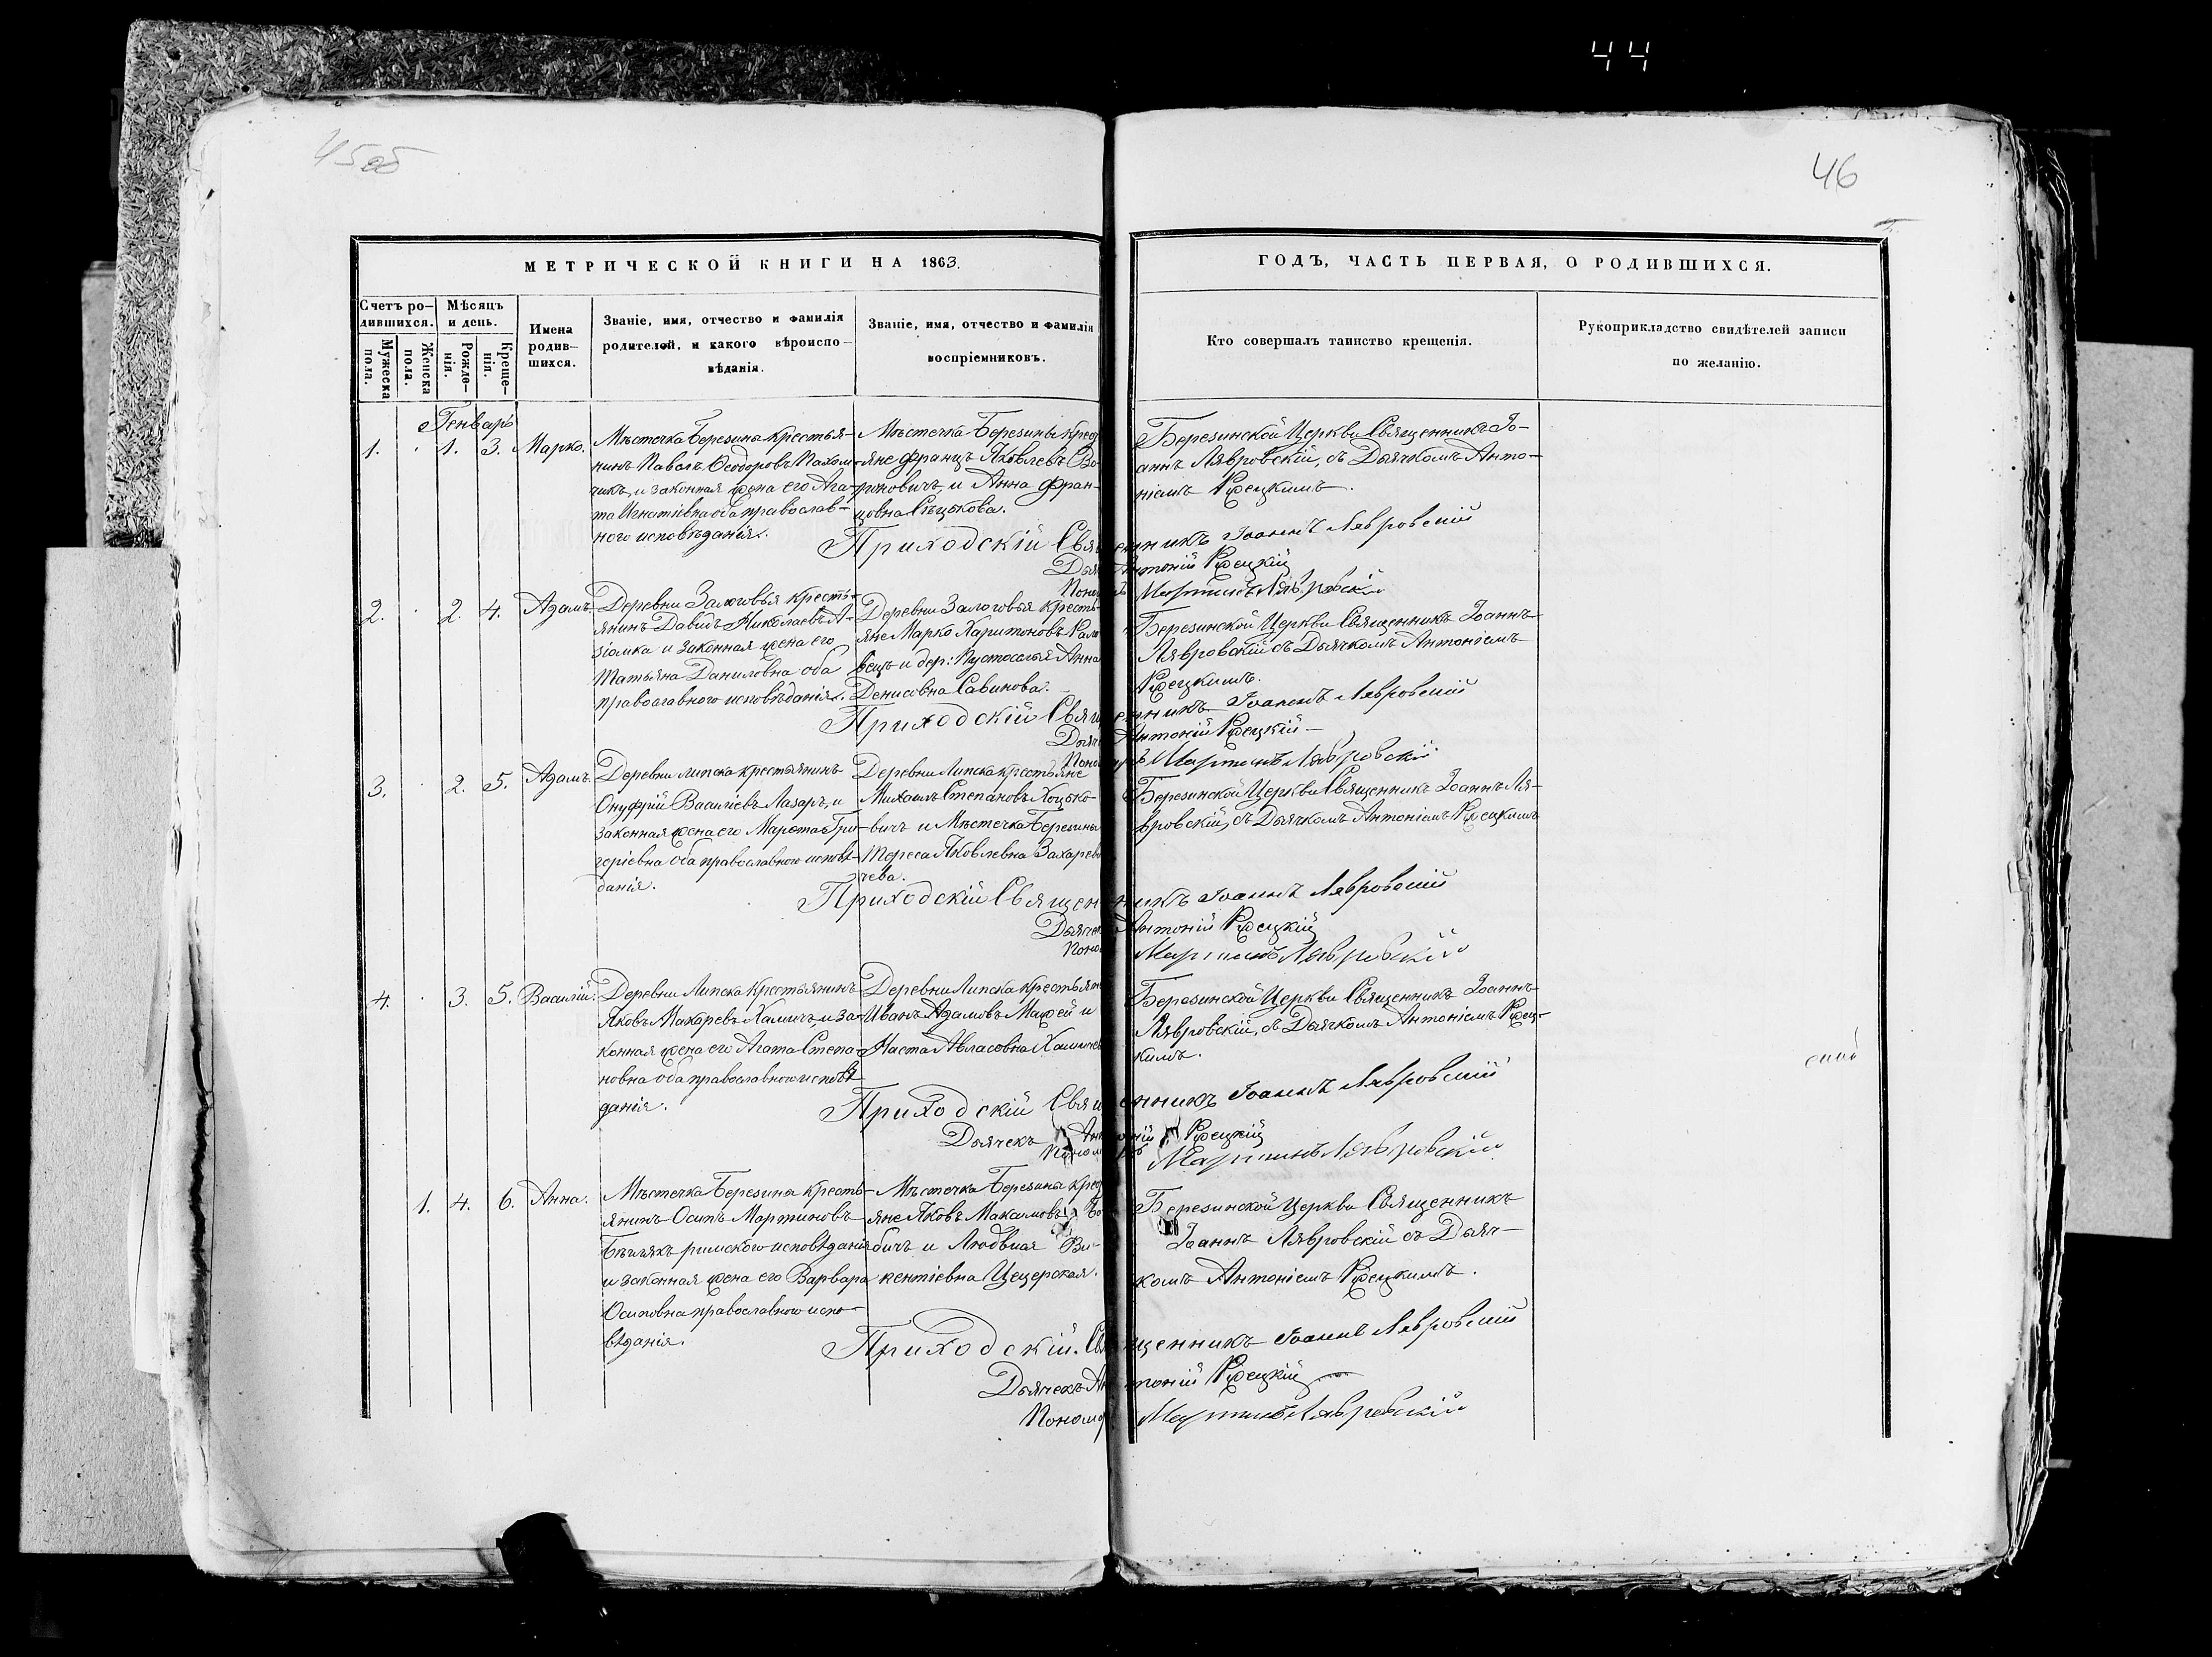 44
45об
46
МЕТРИЧЕСКОЙ КНИГИ НА 1863.
Счетъ ро-
дившихся.
Мужеска
пола.
Женска
пола.
Мѣсяцъ
и день.
Рожде-
нія.
Креще-
нія.
Имена
родив-
шихся.
Званіе, имя, отчество и фамилія
родителей, и какого вѣроиспо-
вѣданія.
Званіе, имя, отчество и фамилія
воспріемниковъ.
ГОДЪ, ЧАСТЬ ПЕРВАЯ, О РОДИВШИХСЯ.
Кто совершалъ таинство крещенія.
Рукоприкладство свидѣтелей записи
по желанію.
Генварь
1. 1. 3. Марко.
Мѣстечка Березина крестья-
нинъ Павелъ Ѳеодоровъ Пахом-
чикъ, и законная жена его Ага-
та Игнатіевна оба православ-
ного исповѣданія.
Мѣстечка Березины крес
яне Францъ Яковлевъ Во
роновичъ, и Анна Фран-
цовна Сѣцькова.
Березинской Церкви Священникъ Іо-
аннъ Лявровскій, съ Дьячкомъ Анто-
ніемъ Ржецкимъ.
Приходскій Священникъ Іоаннъ Лявровскій
Дья Антоній Ржецкій
Поно Мартинъ Лявровскій
2. 2. 4. Адамъ.
Деревни Залоговья кресть-
янинъ Давидъ Николаевъ А-
зіомка и законная жена его
Татьяна Даниловна оба
православного исповѣданія.
Деревни Залоговья кресть
яне Марко Харитоновъ
вецъ и дер: Пустоселья Анна
Денисовна Савинова.
Березинской Церкви Священникъ Іоаннъ
Лявровскій съ Дьячкомъ Антоніемъ
Ржецкимъ.
Приходскій Священникъ Іоаннъ Лявровскій
Дьяч Антоній Ржецкій
Поно Мартинъ Лявровскій
3. 2. 5. Адамъ.
Деревни Липска крестьянинъ
Онуфрій Васильевъ Лазаръ, и
законная жена его Марта Гри-
геріевна оба православного исповѣ-
данія.
Деревни Липска крестьяне
Михаилъ Степановъ Хоцько-
вичъ и Мѣстечка Березины
Тереса Яковлевна Захареви
чева.
Березинской Церкви Священникъ Іоаннъ Ля-
вровскій, съ Дьячкомъ Антоніемъ Ржецкимъ
Приходскій Священникъ Іоаннъ Лявровскій
Дьячек Антоній Ржецкій
Поно Мартинъ Лявровскій
4. 3. 5. Василій.
Деревни Липска крестьянинъ
Яковъ Макаревъ Халичъ, и за-
конная жена его Агата Степа-
новна оба православного исповѣ
данія.
Деревни Липска крестьян
Иванъ Адамовъ Мацей и
Наста Авласовна
Березинской Церкви Священникъ Іоаннъ
Лявровскій, съ Дьячкомъ Антоніемъ Ржец-
кимъ.
Приходскій Священникъ Іоаннъ Лявровскій
Дьячекъ Антоній Ржецкій
Пономарь Мартинъ Лявровскій
1. 4. 6. Анна.
Мѣстечка Березина кресть-
янинъ Осипъ Мартиновъ
римского исповѣданія
и законная жена его Варвара
Осиповна православного испо-
вѣданія.
Мѣстечка Березины крес
яне Яковъ Максимовъ Бо
бичъ и Людвися Ви-
кентіевна Цецерская.
Березинской Церкви Священникъ
Іоаннъ Лявровскій съ Дьяч-
комъ Антоніемъ Ржецкимъ.
Приходскій Священникъ Іоаннъ Лявровскій
Дьячекъ Антоній Ржецкій
Пономар Мартинъ Лявровскій